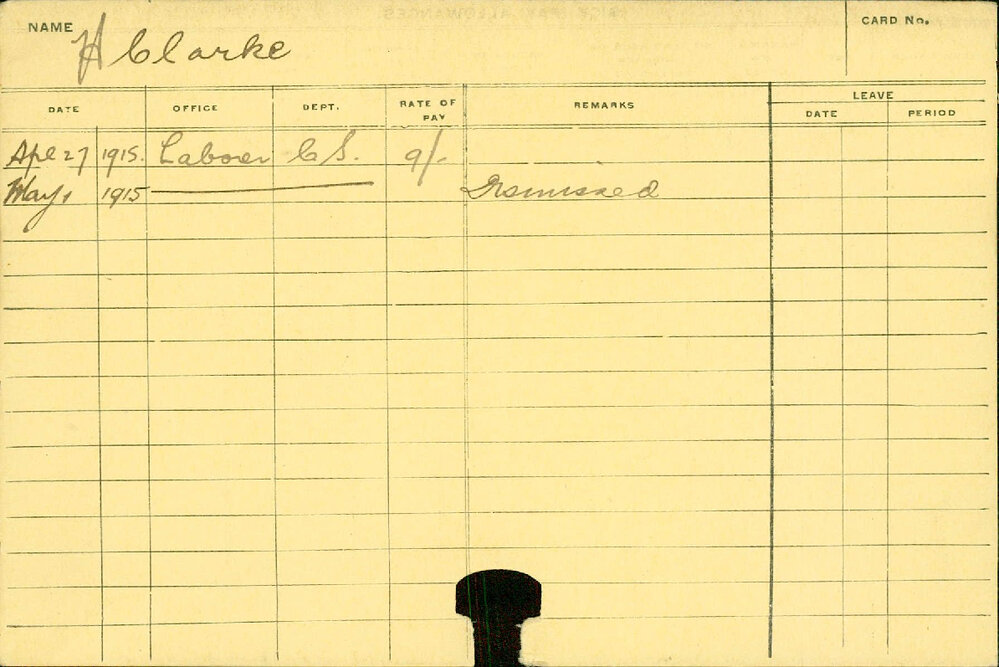 NAME H Clarke
CARD No.
DATE OFFICE DEPT. RATE OF PAY REMARKS LEAVE
DATE PERIOD
Apl 27 1915. Laborer C S. 9/-
May 1 1915 Dismissed